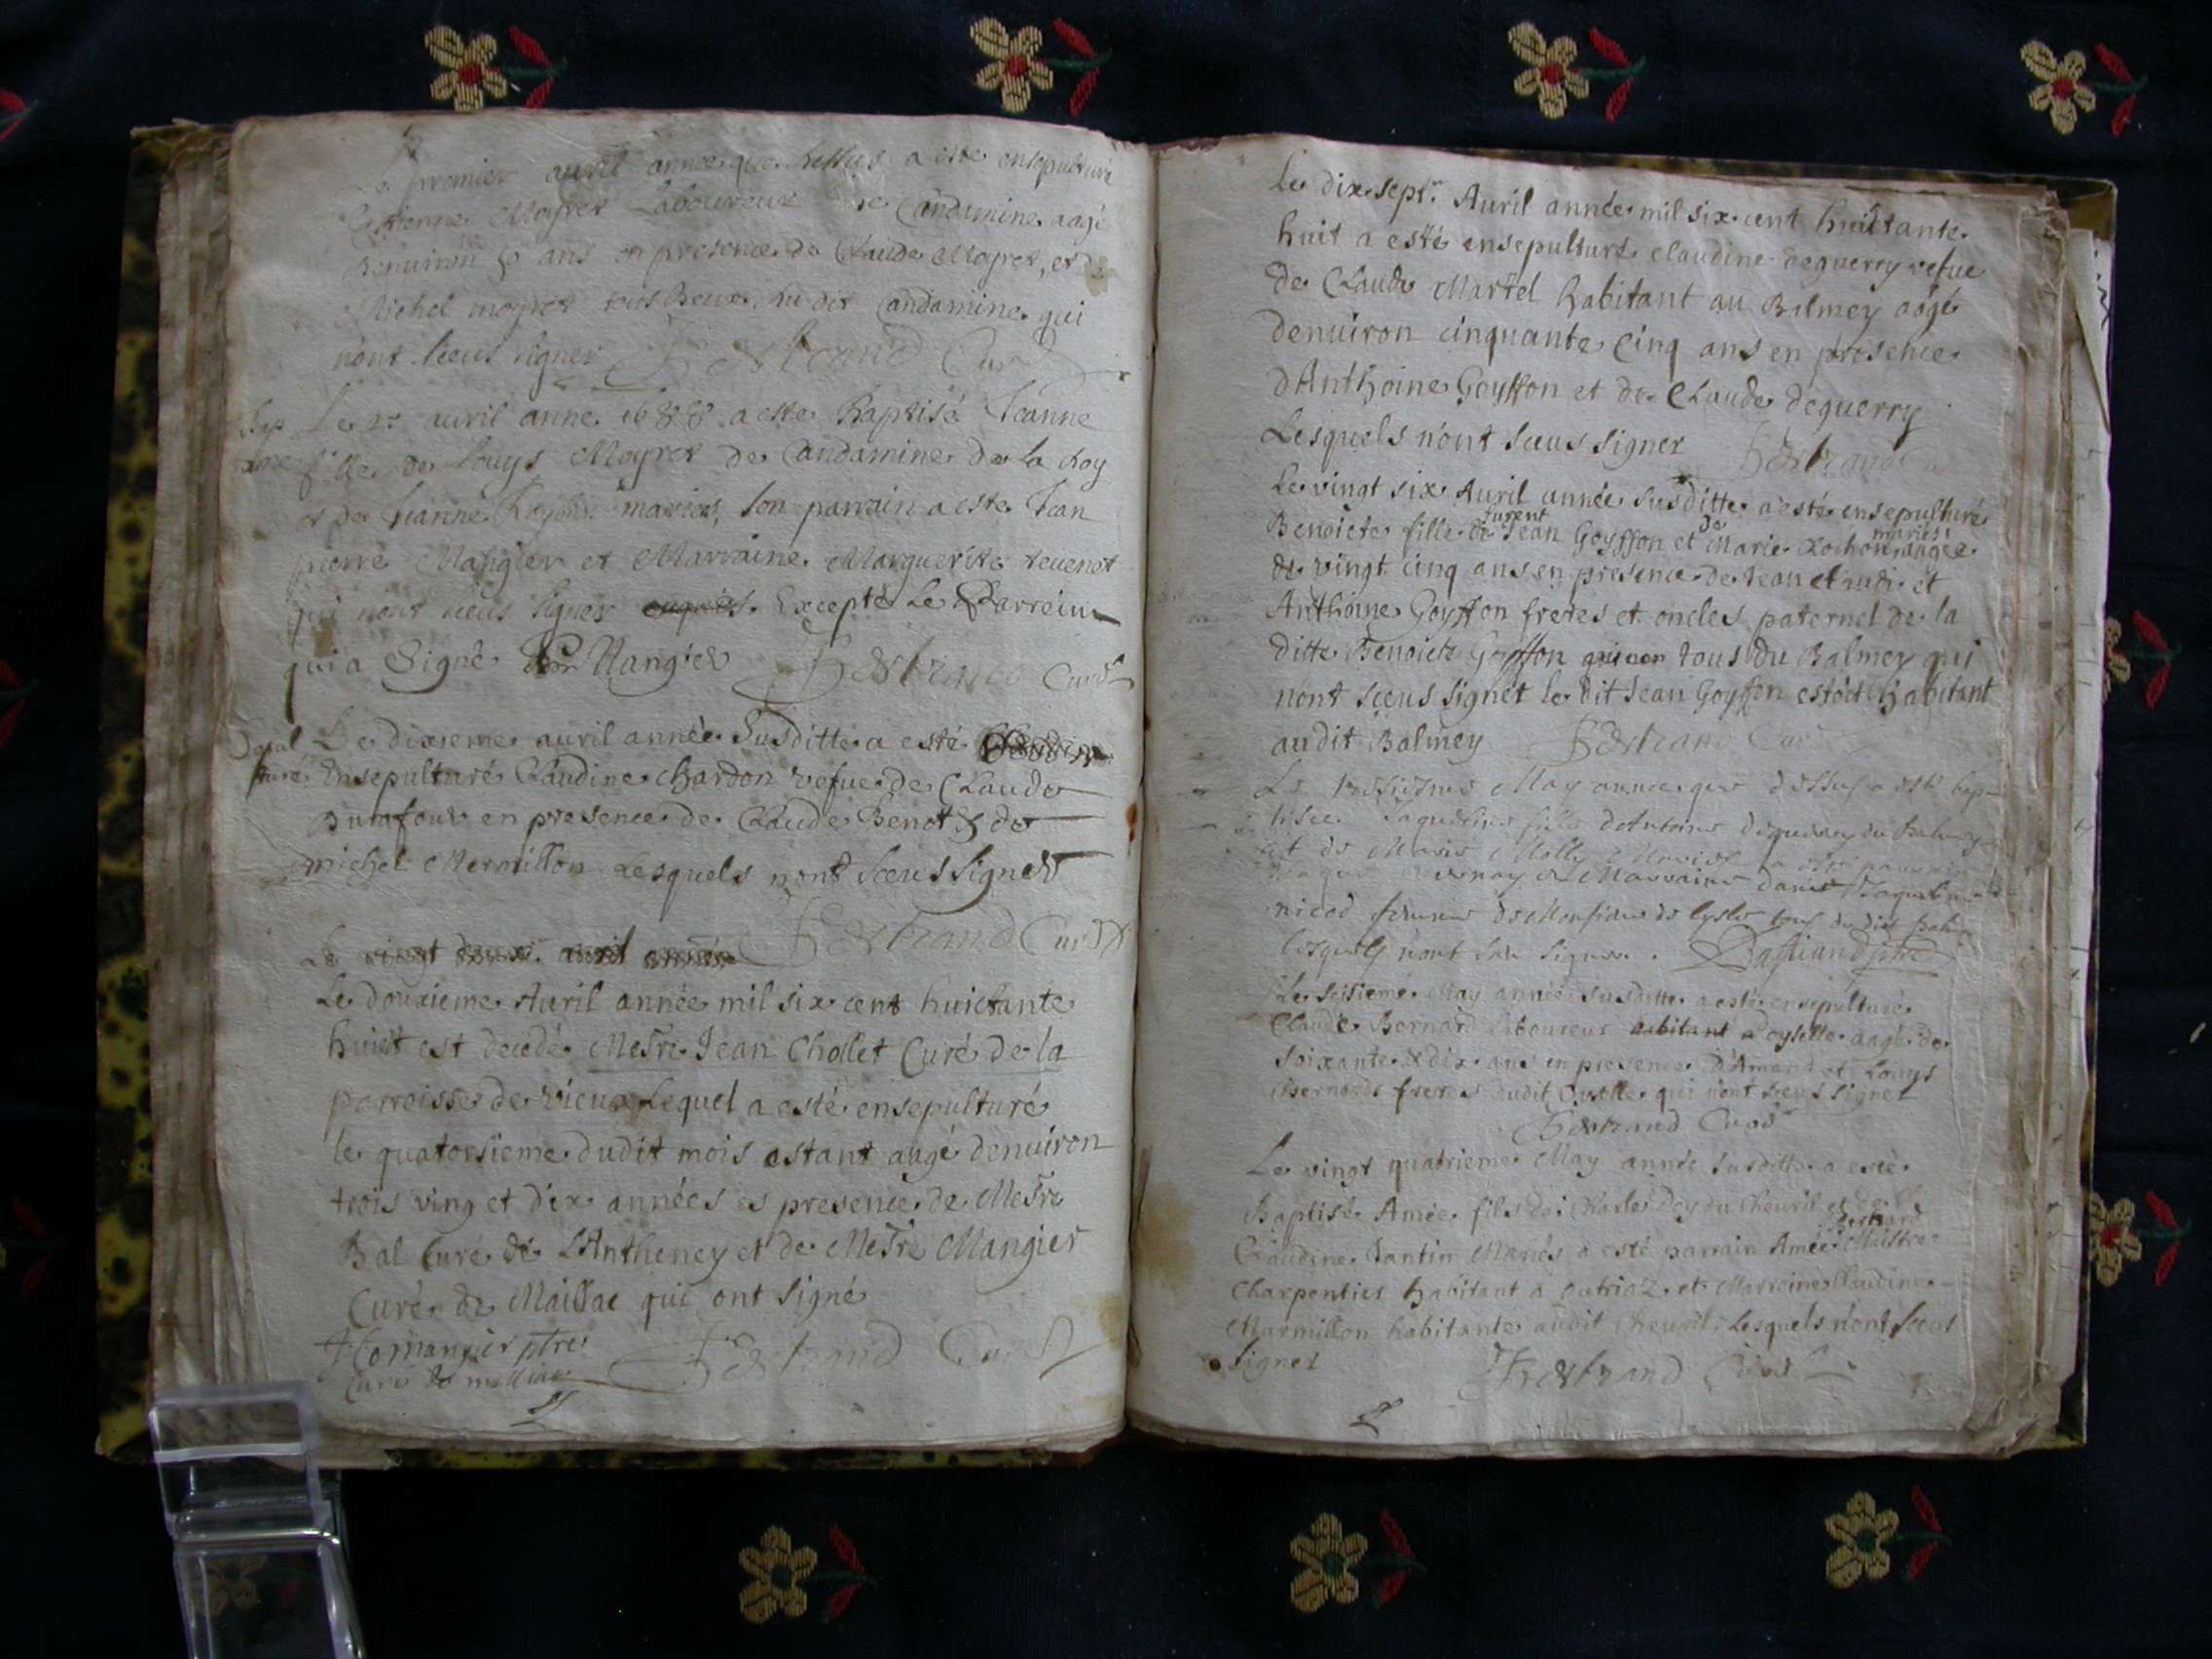 premier auril annee que dessus a este ensepulturé
Estienne Mayret Laboureur de Candamine aagé
denuiron 50 ans en presence de Claude Mayret, et de
Michel mayret tous deux du dit Candamine qui
n'ont sceus signer Bertrand Curé
Bap Le 2e auril anne 1688 a este Baptisé Jeanne
fille de Louys Mayret de Candamine de la
et de Jeanne mariés, son parrain a este Jean
pierre Mangier et Marraine Marguerite teuenet
qui n'ont sceus signer Excepté Le Parrein
qui a Signé Mangier Bertrand Curé
Le dixieme auril année Susditte a esté
Ensepulturé Claudine chardon vefue de Claude
Burafour en presence de Claude Benot & de
michel Mermillon Lesquels n'ont sceus Signer
Bertrand Curé
Le vingt auril année
Le douxieme Auril année mil six cent huictante
huict est decedé Mesre Jean Chollet Curé de la
parroisse de vieux Lequel a esté ensepulturé
le quatorsieme dudit mois estant aagé denuiron
trois ving et dix années es presence de Mesre
Bal Curé de L'Antheney et de Mesre Mangier
Curé de Maillac qui ont signé
mangier ptre
Curé de Bertrand Curé
Le dix sept. Auril année mil six cent huictante
huit a esté ensepulturé claudine deguerry vefue
de Claude Martel habitant au Balmey aagé
denuiron cinquante Cinq ans en presence
d'Anthoine Goyffon et de Claude deguerry
Lesquels n'ont sceus signer Bertrand
Le vingt six Auril année susditte a esté ensepulturé
furent de mariés
Benoicte fille de Jean Goyffon et Marie Rochon aagée
de vingt cinq ans en presence de Jean claude et
Anthoine Goyffon freres et oncles paternel de la
ditte Benoicte Goyffon tous du Balmey qui
n'ont sceus signer le dit Jean Goyffon estoit habitant
audit Balmey Bertrand Curé
Le May annee que dessus a esté bap-
tisée Jaqueline fille d'Antoine deguerry du Balmey
et de Marie Molly parrain
et Marraine dame Jaqueline
nicod femme de Monsieur de lysle tous du dit
lesquels n'ont seu signer.
Le seisieme May année susditte a esté ensepulturé
Claude Bernard Laboureur habitant a oyselle aagé de
soixante & dix ans en presence d'Amand et Louys
Bernards freres dudit Oyselle qui n'ont sceus signer
Bertrand Curé
Le vingt quatrieme May année susditte a esté
Baptisé Amée fils de Charle Dey du Cheuril et de
Bertrand
Claudine Tantin Mariés a esté parrain Amée Maistre
Charpentier habitant a Outriaz et Marreine Claudine
Marmillon habitante audit Cheuril Lesquels n'ont sceus
signer Bertrand Curé